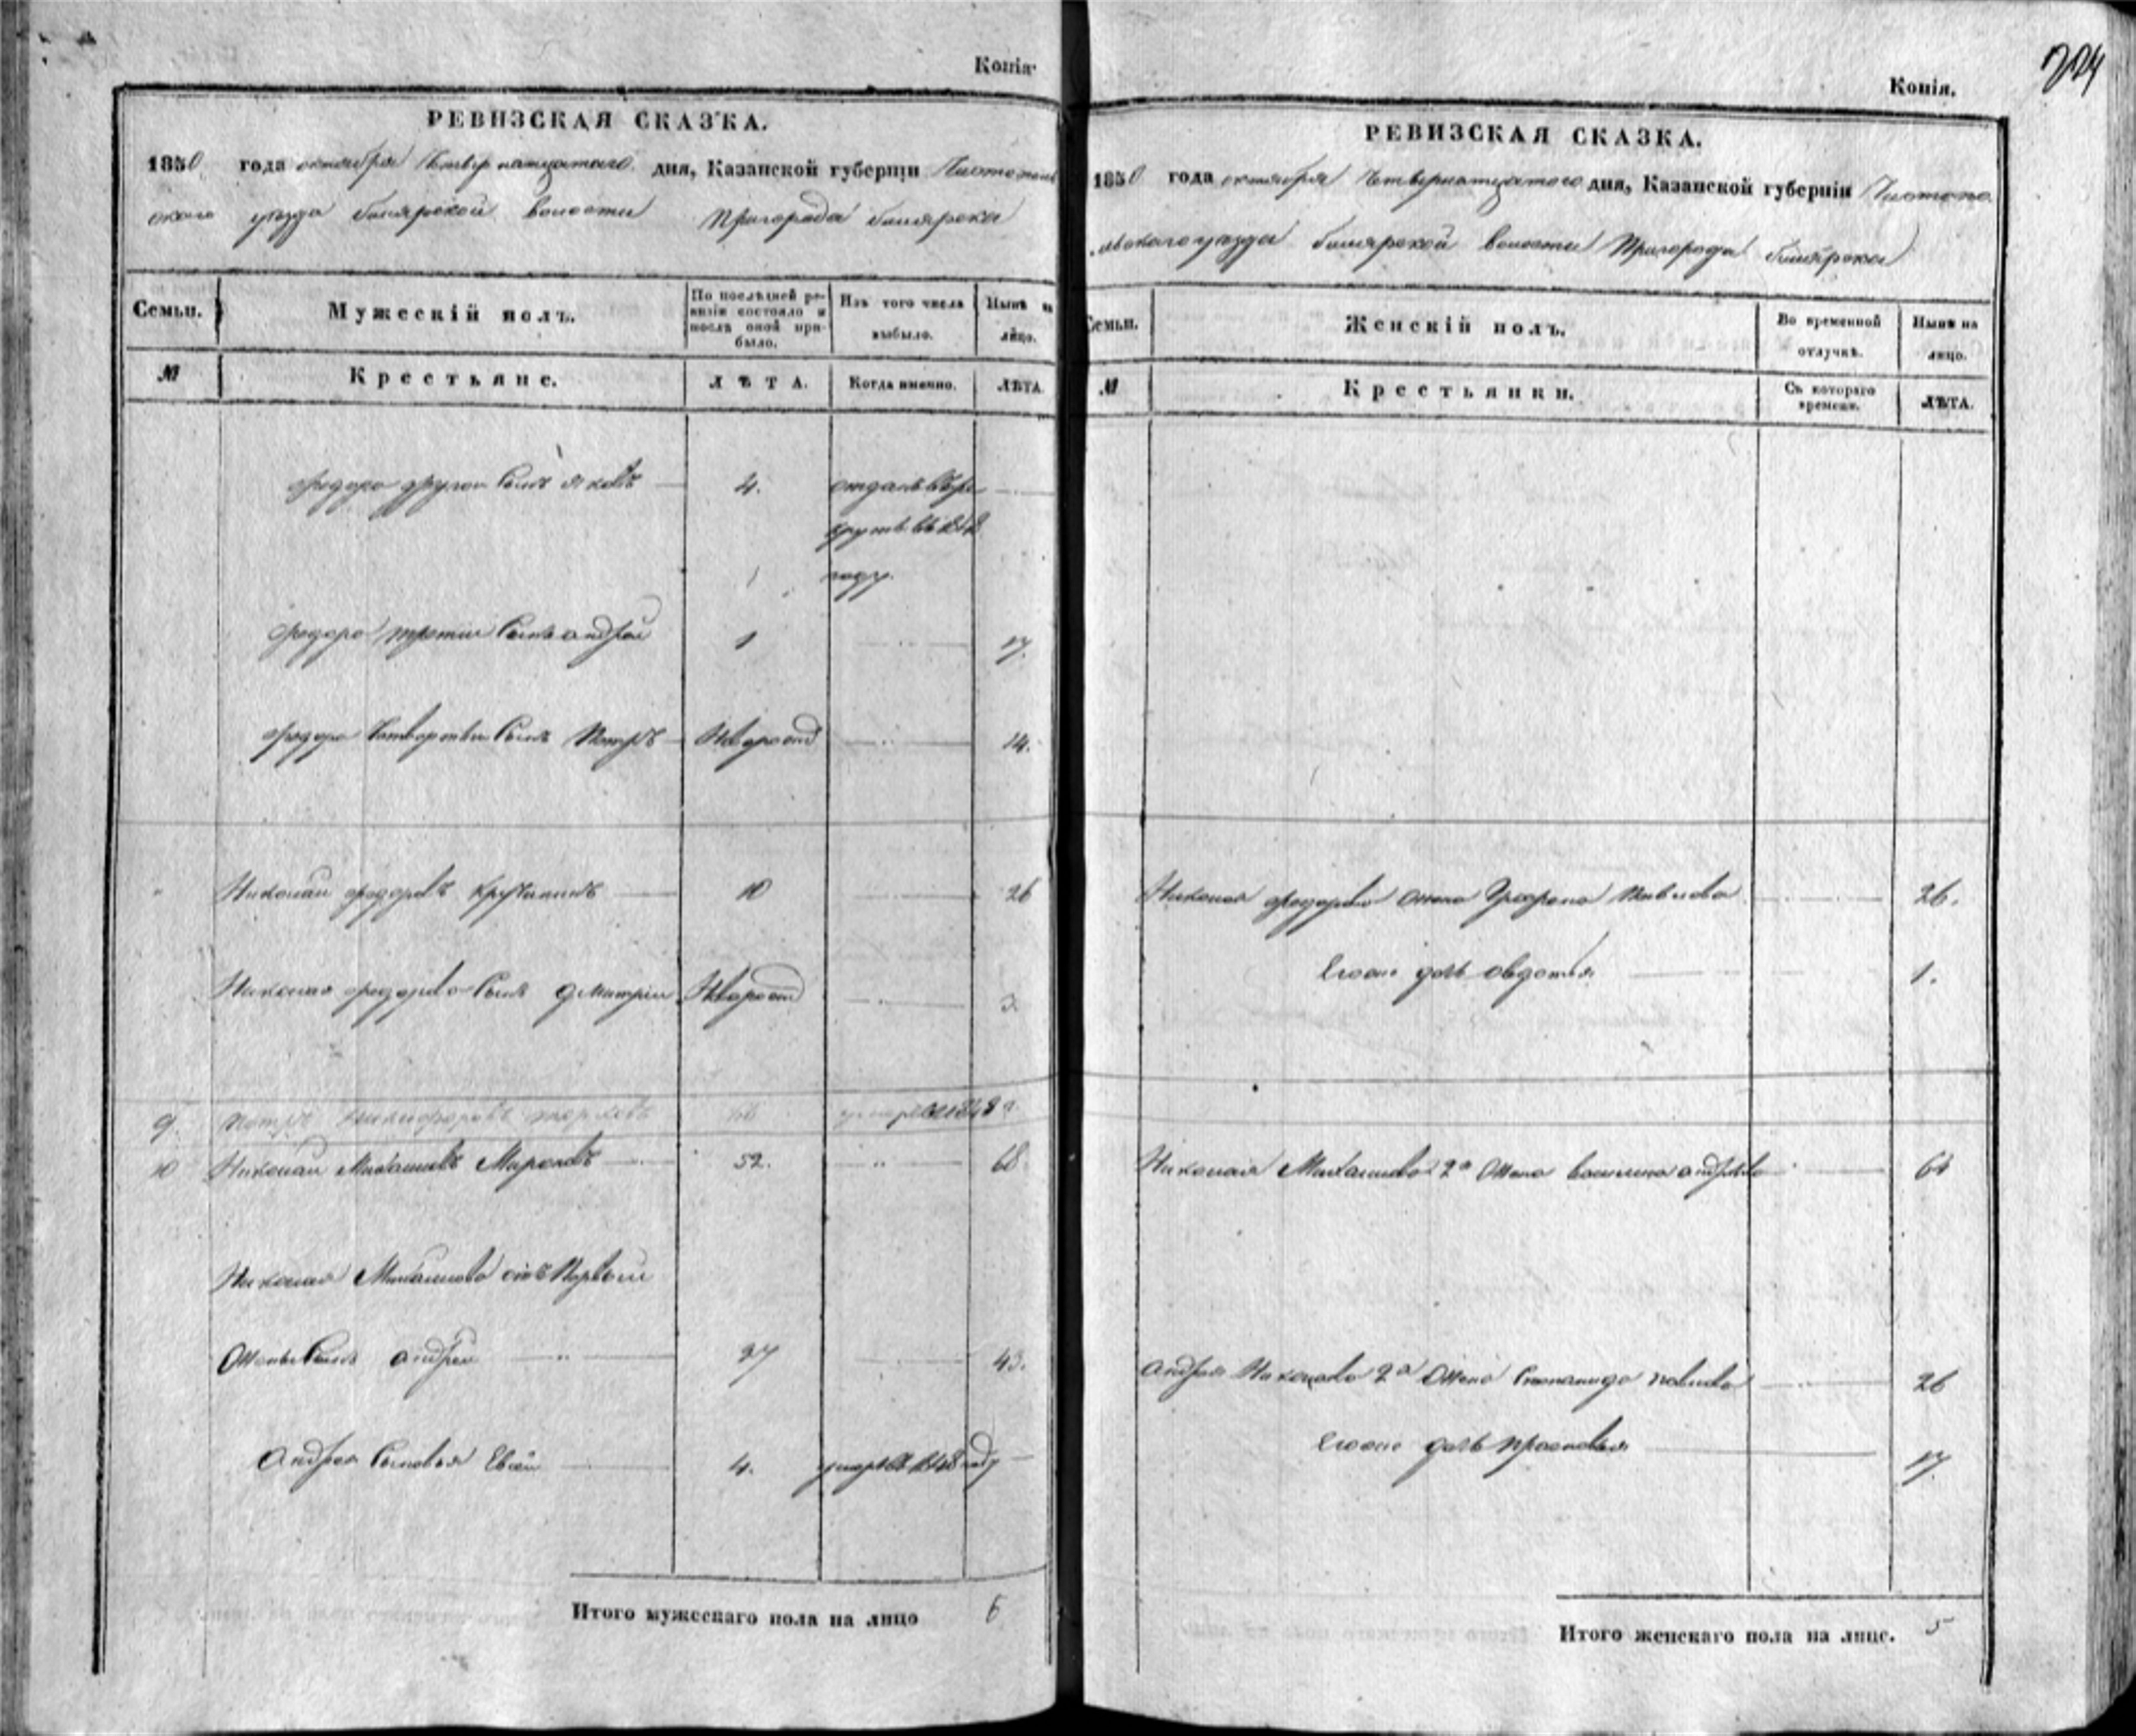 Копія
РЕВИЗСКАЯ СКАЗКА.
1850 года октября Четвернатцатого дня, Казанской губерніи Чистополь
скаго уезда билярской волости Пригорода билярска
Семьи.
Мужескій полъ.
По послѣдней ре-
визіи состояло и
послѣ оной при-
было.
Изъ того числа
выбыло.
Нынѣ на
лицо.
№
Крестьяне.
ЛѢТА.
Когда именно.
ЛѢТА
федора другои Сынъ Яковъ 4. отданъ въ ре
круты въ 1842
году.
федора третии Сынъ андреи 1 17.
федора Четвертыи Сынъ Петръ Новорожд 14.
Николаи федоровъ 10 26
Николая федорова Сынъ Дмитрии Новорожд 3.
9. Петръ Никифоровъ
10 Николаи Михаиловъ Мироновъ 52. 68.
Николая Михаилова отъ Первыи
Жены Сынъ андреи 27 43.
Андрея Сыновья Евсеи 4. умеръ въ 1848 году
Итого мужескаго пола на лицо 6
Копія.
РЕВИЗСКАЯ СКАЗКА.
1850 года октября Четвернатцатого дня, Казанской губерніи Чистопо
льскаго уезда билярской волости Пригорода билярска
Семьи.
Женскій полъ.
Во временной
отлучкѣ.
Нынѣ на
лицо.
№
Крестьянки.
Съ котораго
времени.
ЛѢТА.
Николая федорова жена Павлова 26.
Егоже дочь авдотья 1.
Николая Михаилова 2а жена Василиса андреева
Андрея Николаева 2а жена Степанида Павлова 26
Егоже дочь Прасковья 17.
Итого женскаго пола на лице. 5